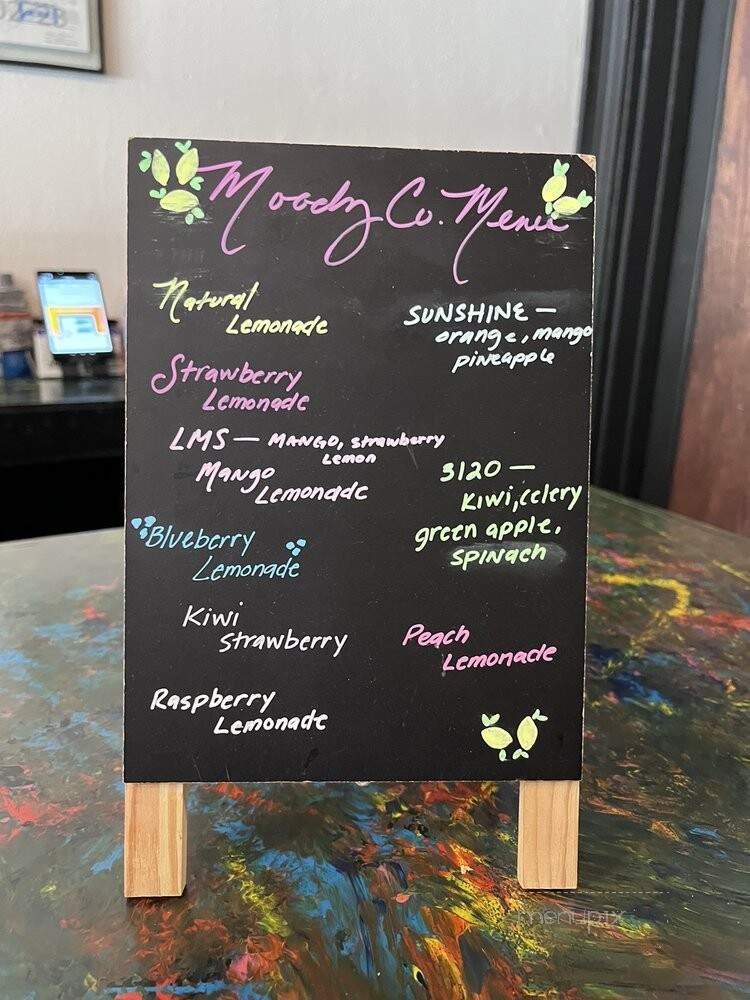 Moody Co. Menu
Natural
Lemonade
Strawberry
Lemonade
LMS — MANGO, strawberry
Lemon
Mango
Lemonade
Blueberry
Lemonade
Kiwi
Strawberry
Raspberry
Lemonade
SUNSHINE —
orange, mango
pineapple
3120 —
Kiwi, celery
green apple,
SPINACH
Peach
Lemonade
menupix